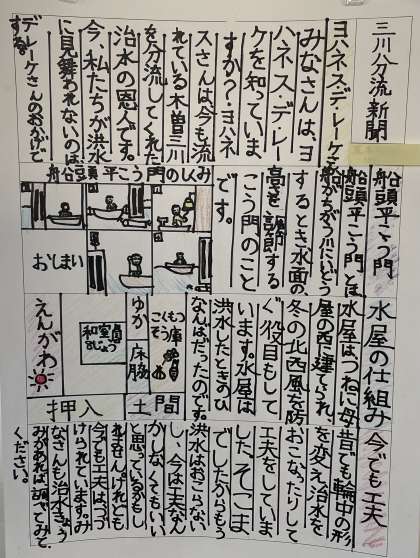 三川分流新聞
ヨハネス・デ・レーケさん
みなさんは、ヨ
ハネス・デ・レー
ケを知っていま
すか?ヨハネ
スさんは、今も流
れている木曽三川
を分流してくれた
治水の恩人です。
今、私たちが洪水
に見舞われないのは、
デ・レーケさんのおかげで
す。
船頭平こう門
船頭平こう門とは、
船がちがう川にいどう
するとき、水面の
高さを調節する
こう門のこと
です。
船頭平こう門のしくみ
おしまい
水屋の仕組み
水屋は、つねに母
屋の西に建てられ、
冬の北西風を防
ぐ役目もして
います。水屋は
洪水したときのひ
なんばだったのです。
こくもつ
そう庫
ゆか
床脇
和室
8じょう
えんがわ
押入
土間
今でも工夫
昔でも輪中の形
を変え治水を
おこなったりして
工夫をしていま
した。そこま
でしたからもう
洪水はおこらない
し、今は工夫なん
かしなくてもいい
と思っているかもし
れませんけれども
今でも工夫はつづ
けられています。み
なさんも治水にきょう
みがあれば調べてみて
ください。